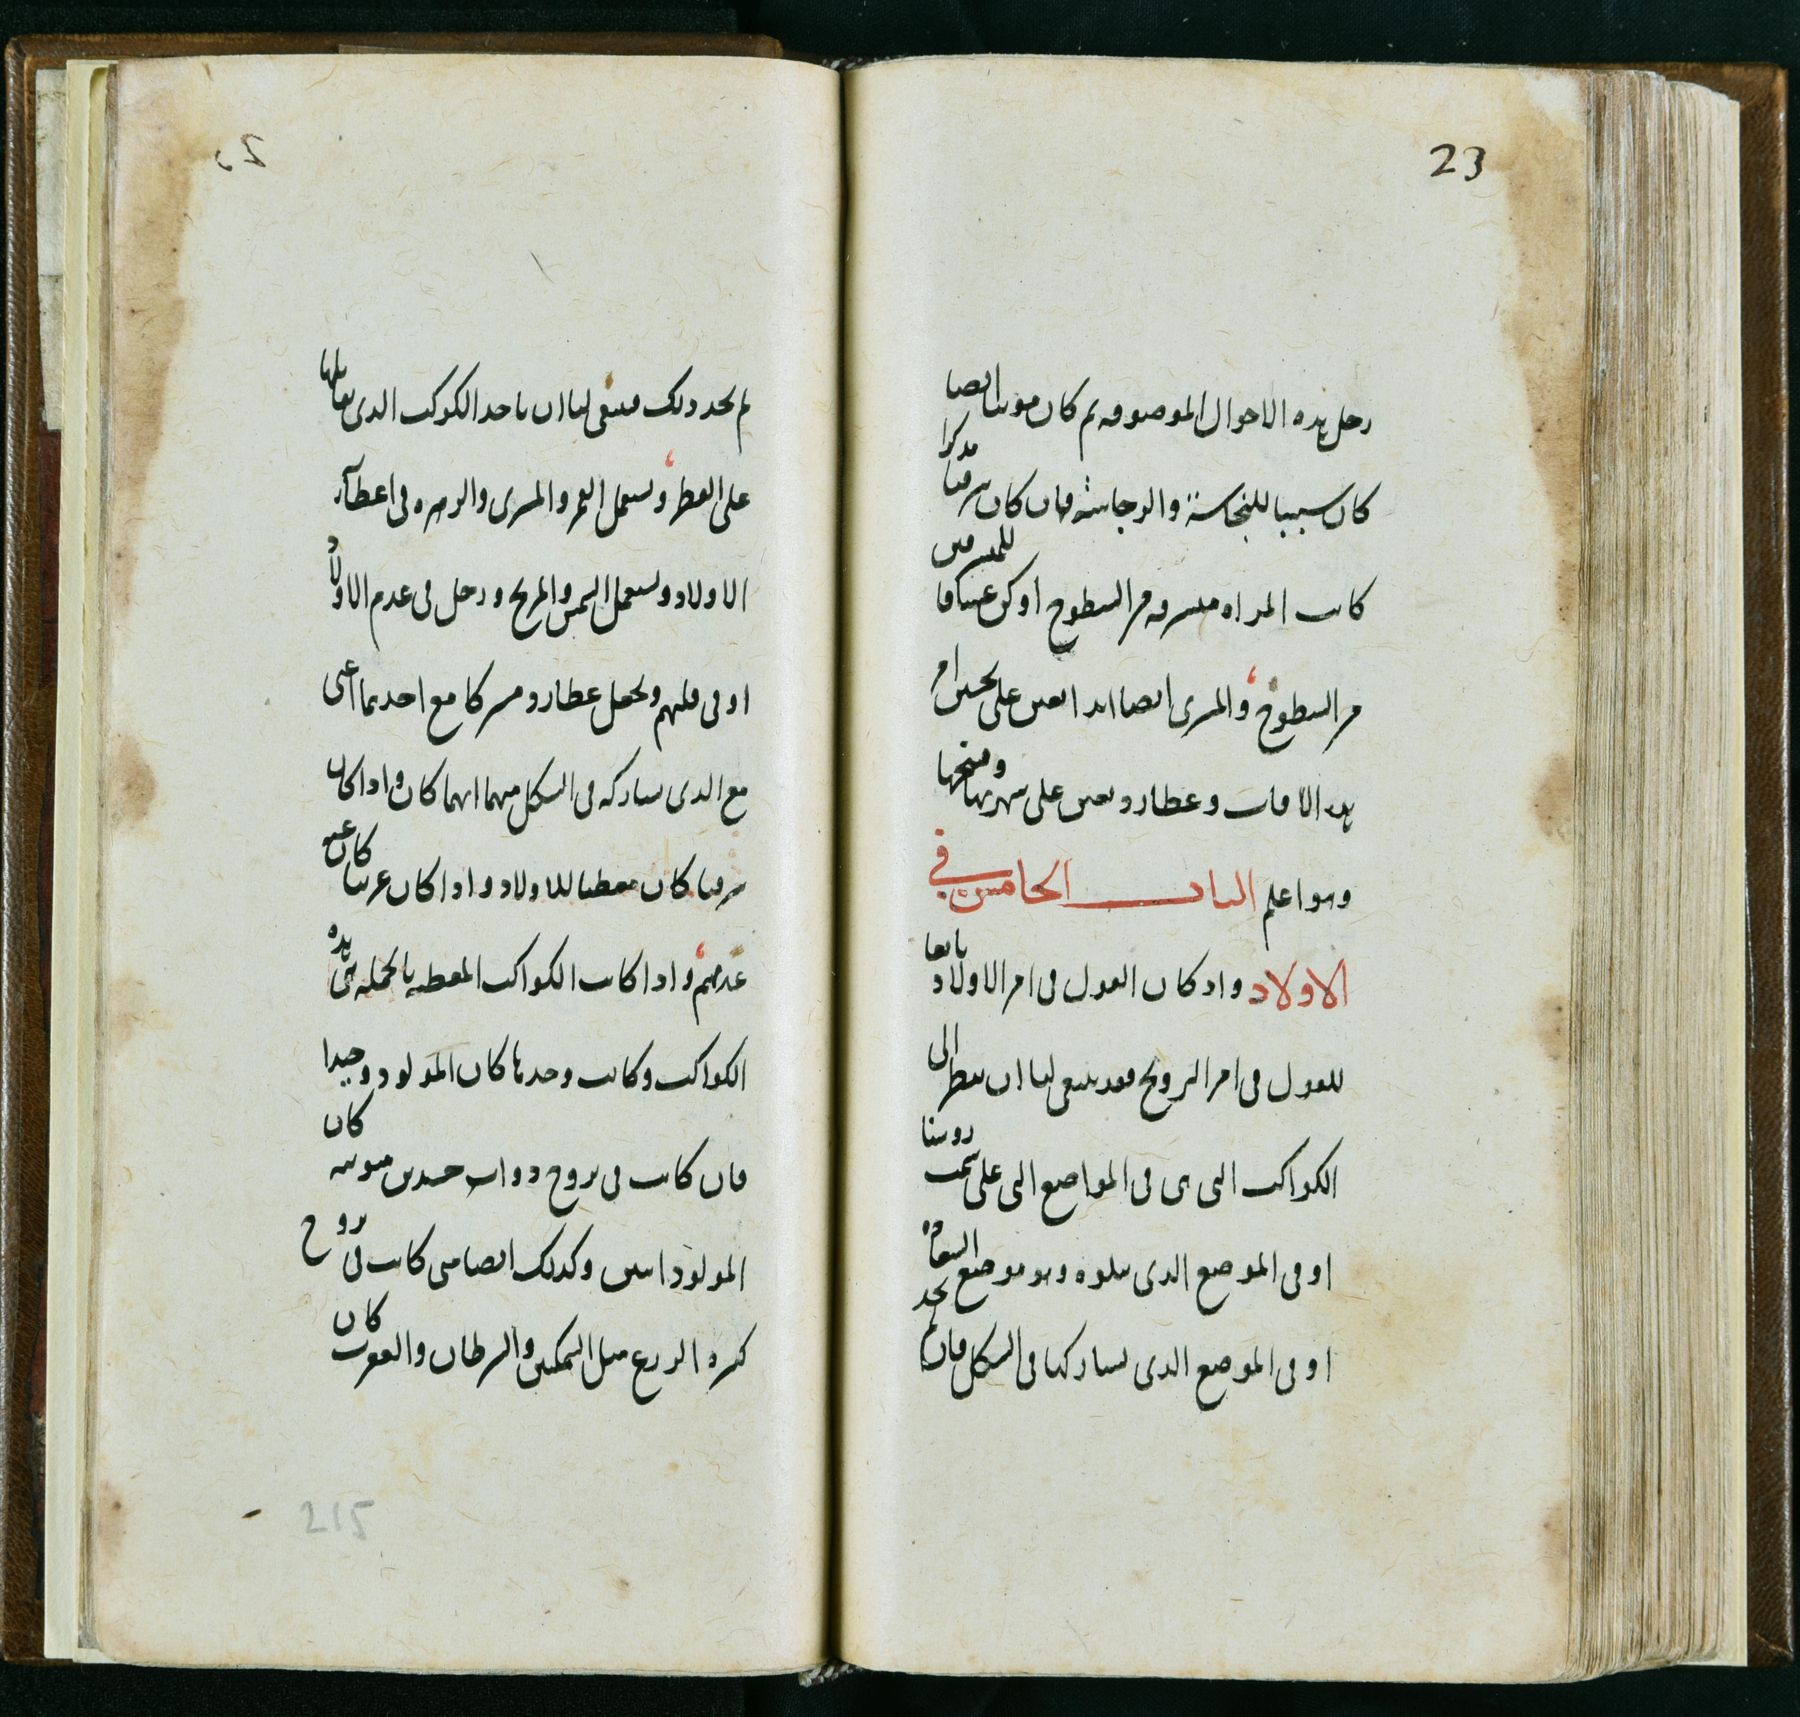 23
زحل بهذه الاحوال الموصوفه ثم كان مونثا ايضا
كان سببا للنجاسة فان كان شرقيا مذكرا
كانت المراه من السطوح او كن
من السطوح والمشترى ايضا ابدا يعين على تحسين امر
هذه الافات وعطارد يعين على شهرتها
وهو اعلم الباب الخامس في
الاولاد واذ كان القول فى امر الاولاد تابعا
للقول فى امر التزويج فقد ينبغى لنا ان ننظر الى
الكواكب التى هى فى المواضع التى على سمت روسنا
او فى الموضع الذى يتلوه وهو موضع السعاده
او فى الموضع الذى يشاركها فى الشكل فان لم نجد
لم نجد ذلك فينبغى لنا ان ناخذ الكوكب الذى يقابلها
على القطر ونستعمل القمر والمشترى والزهره فى اعطآء
الاولاد ونستعمل الشمس والمريخ وزحل فى عدم الاولاد
او فى قلتهم ونجعل عطارد مشتركا مع احدهما اعنى
مع الذى يشاركه فى الشكل منهما ايهما كان واذا كان
شرقيا كان معطيا للاولاد واذا كان غربيا كان عن
عدمهم واذا كانت الكواكب المعطيه بالجمله هى هذه
الكواكب وكانت وحدها كان المولود وحيدا
فان كانت فى بروج ذوات جسدين مونثه كان
المولود اثنين وكذلك ايضا متى كانت فى بروج
كثيره الزرع مثل السمكتين والسرطان والعقرب كان
215